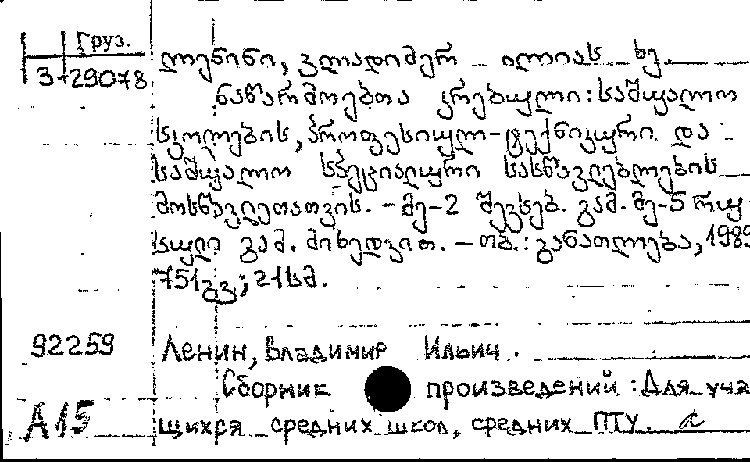 Груз.
3-29078
ლენინი, ვლადიმერ ილიას ძე.
ნაწარმოებთა კრებული: საშუალო
სკოლების, პროფესიულ-ტექნიკური და
საშუალო სპეციალური სასწავლებლების
მოსწავლეთათვის. - მე-2 შევსებ. გამ. მე-5 რუ
სული გამ. მიხედვით. - თბ.: განათლება, 1989
751გვ; 21სმ.
92259
Ленин, Владимир Ильич.
Сборник произведений: Для уча
А15
щихся средних школ, средних ПТУ. и